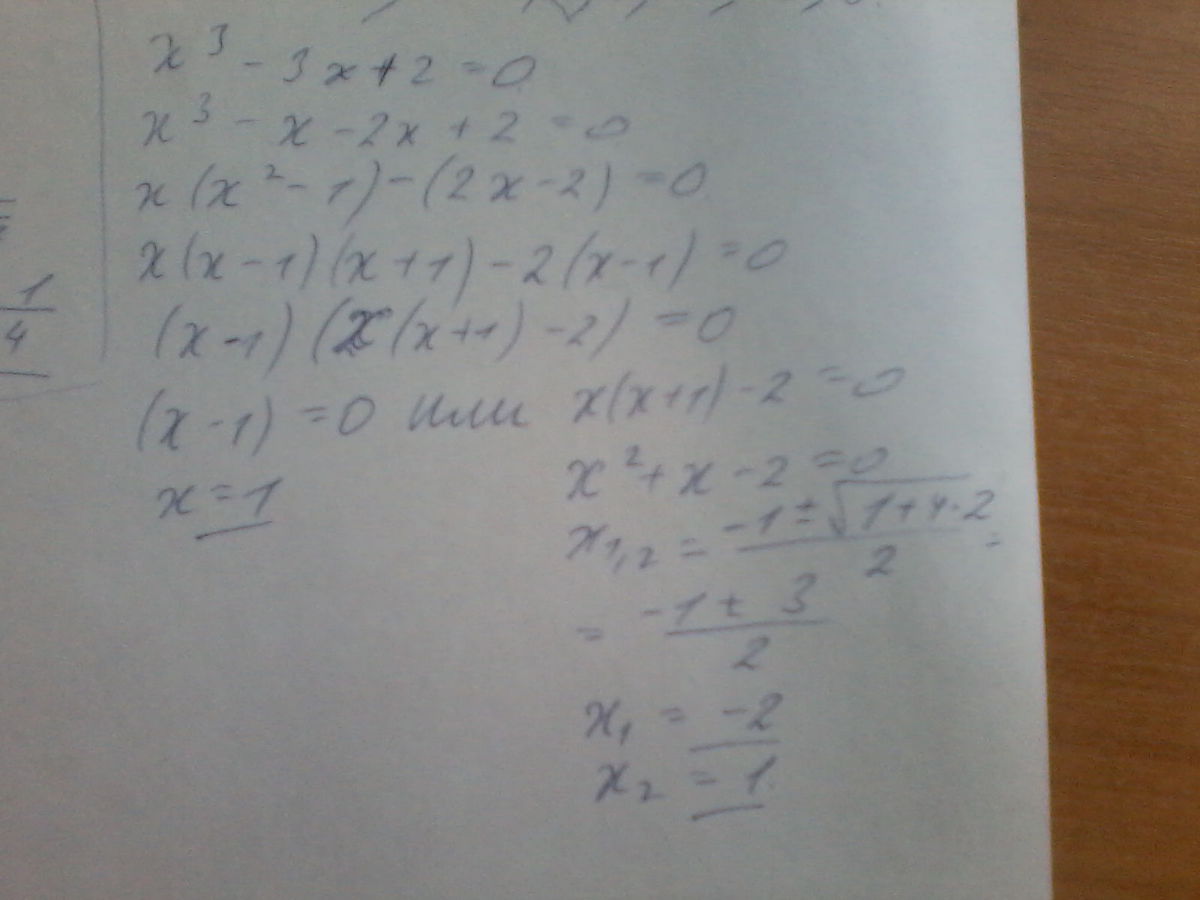 x³ - 3x + 2 = 0
x³ - x - 2x + 2 = 0
x(x² - 1) - (2x - 2) = 0
x(x - 1)(x + 1) - 2(x - 1) = 0
(x - 1)(x(x + 1) - 2) = 0
(x - 1) = 0 или x(x + 1) - 2 = 0
x = 1
x² + x - 2 = 0
x₁,₂ = (-1 ± √(1 + 4·2))/2 =
= (-1 ± 3)/2
x₁ = -2
x₂ = 1
1/4